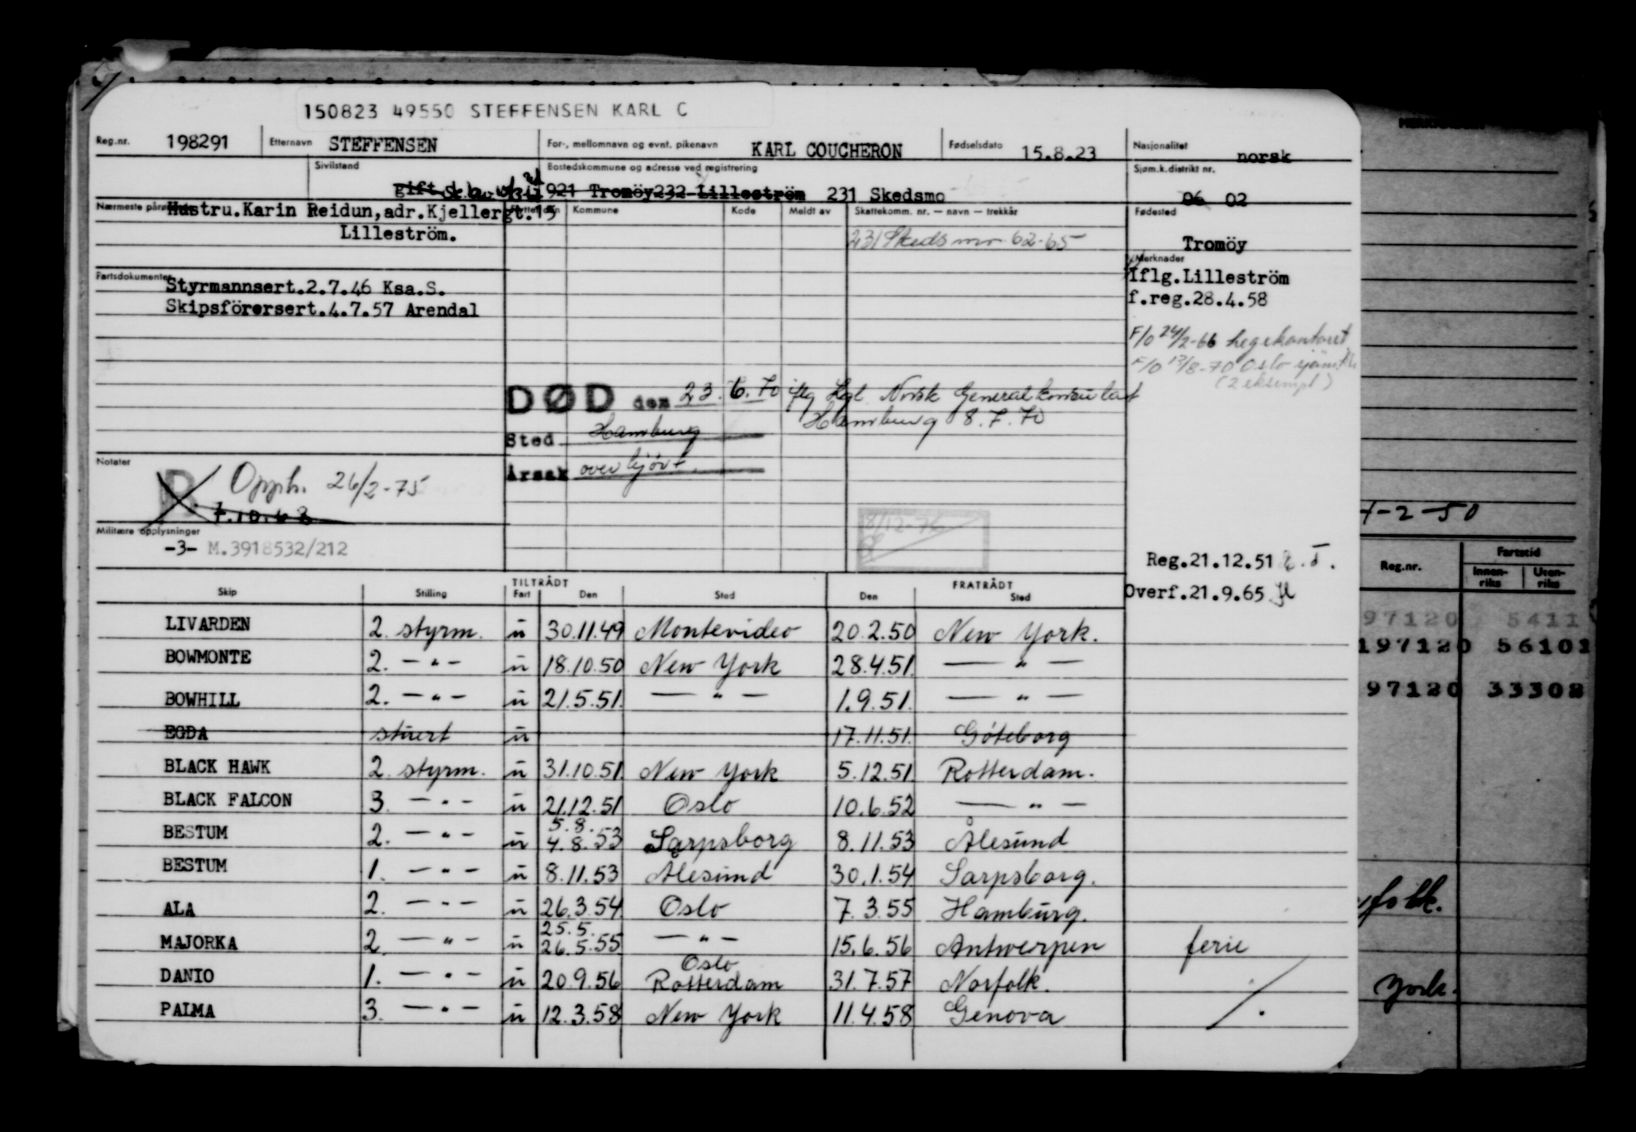 150823 49550 STEFFENSEN KARL C
Reg.nr. 198291 Etternavn STEFFENSEN For-, mellomnavn og evnt. pikenavn KARL COUCHERON Fødselsdato 15.8.23 Nasjonalitet norsk
Sivilstand gift Bostedskommune og adresse ved registrering 921 Tromöy 232 Lilleström 231 Skedsmo Sjøm.k.distrikt nr. 06 02
Nærmeste Hustru.Karin Reidun,adr.Kjellergt.15 Kommune Kode Meldt av Skattekomm. nr. — navn — trekkår Fødested
Lilleström. 231 Skedsmo 62-65 Tromöy
Merknader
Fartsdokumenter Iflg.Lilleström
Styrmannsert.2.7.46 Ksa.S. f.reg.28.4.58
Skipsförersert.4.7.57 Arendal
F/o 24/2-66
F/o 13/8-70 Oslo
(2 eksempl)
DØD den 23.6.70 iflg Kgl Norsk Generalkonsulat
Hamburg 8.7.70
Sted Hamburg
Årsak overkjørt
Notater
R Opph. 26/2-75
7.10.68
Militære opplysninger
-3- M.3918532/212
8/12-76
Reg.21.12.51
Overf.21.9.65
TILTRÅDT FRATRÅDT
Skip Stilling Fart Den Sted Den Sted
LIVARDEN 2. styrm. u 30.11.49 Montevideo 20.2.50 New York.
BOWMONTE 2. — " — u 18.10.50 New York 28.4.51 — " —
BOWHILL 2. — " — u 21.5.51 — " — 1.9.51. — " —
EGDA stuert u 17.11.51 Göteborg
BLACK HAWK 2. styrm. u 31.10.51 New York 5.12.51 Rotterdam.
BLACK FALCON 3. — " — u 21.12.51 Oslo 10.6.52 — " —
5.8.
BESTUM 2. — " — u 4.8.53 Sarpsborg 8.11.53 Ålesund
BESTUM 1. — " — u 8.11.53 Ålesund 30.1.54 Sarpsborg.
ALA 2. — " — u 26.3.54 Oslo 7.3.55 Hamburg.
25.5.
MAJORKA 2 — " — u 26.5.55 — " — 15.6.56 Antwerpen ferie
Oslo
DANIO 1. — " — u 20.9.56 Rotterdam 31.7.57 Norfolk.
PALMA 3. — " — u 12.3.58 New York 11.4.58 Genova
-2-50
Reg.nr. Fartstid
Innenriks Utenriks
97120 5411
197120 56101
97120 33308
folk.
York.